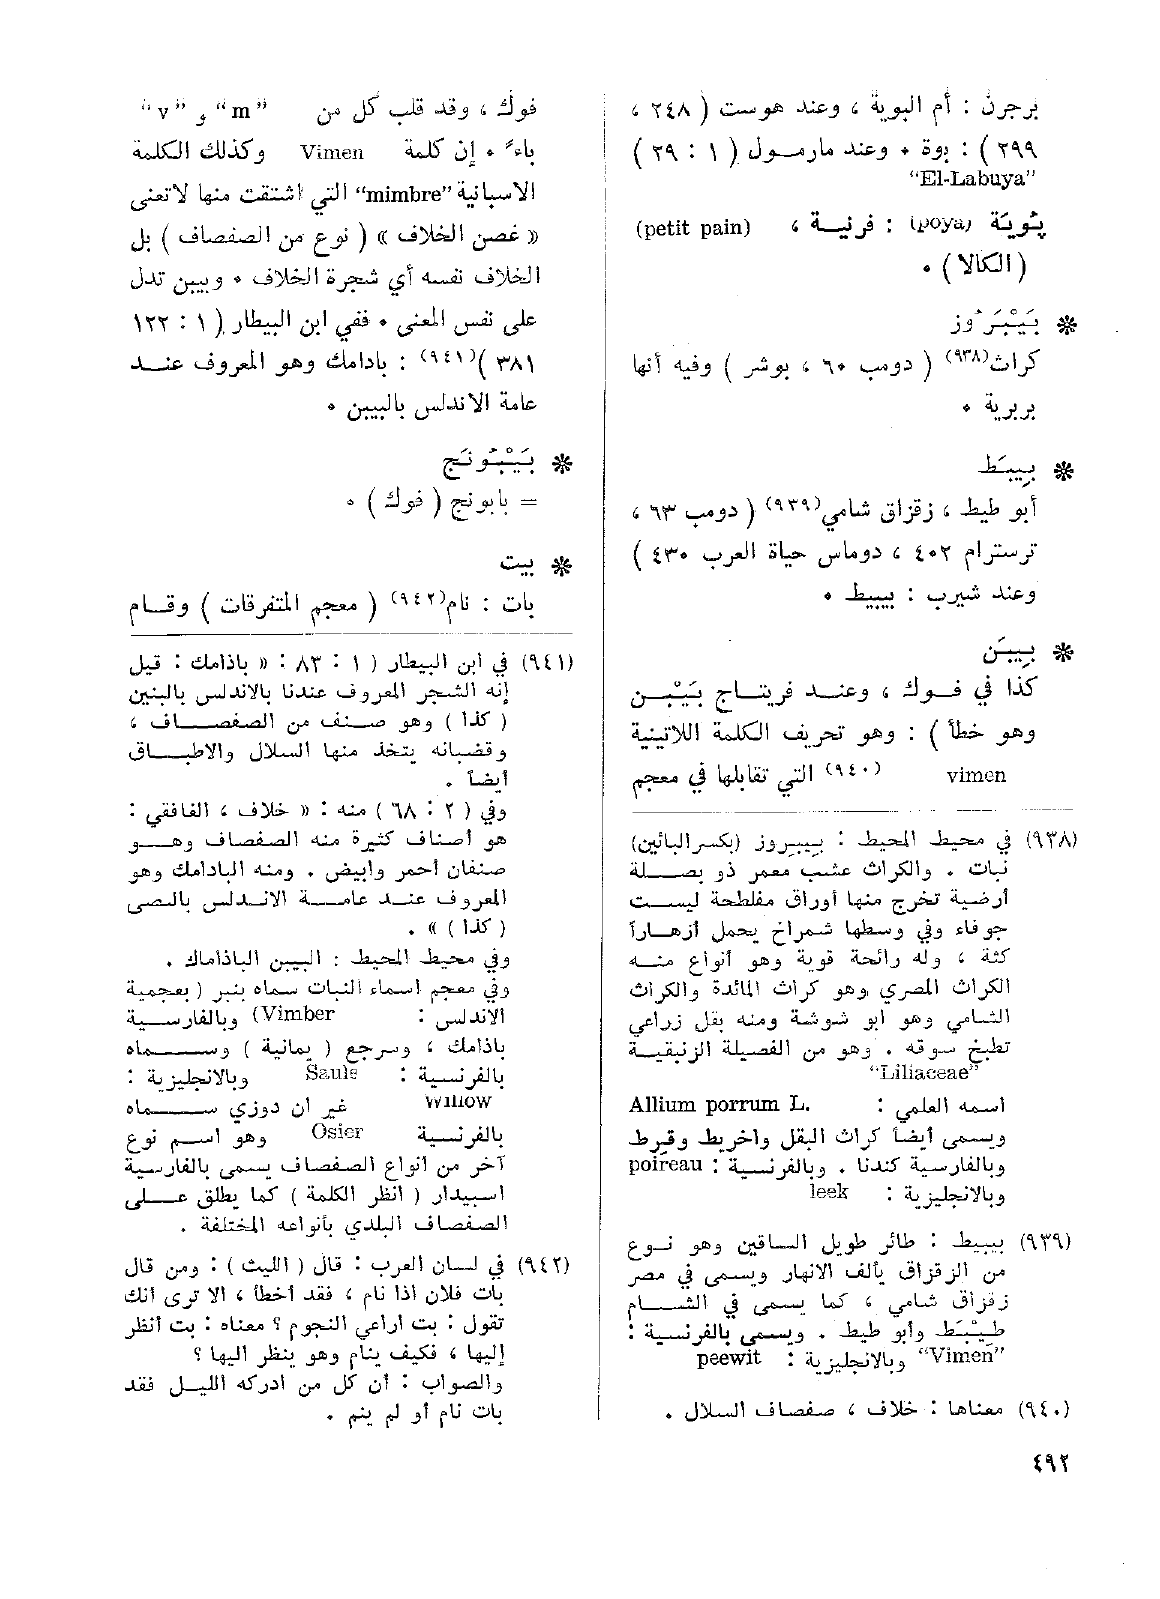 برجرن : أم البوية ، وعند هوست ( ٢٤٨ ،
٢٩٩ ) : بوة ٠ وعند مارمـول ( ١ : ٢٩ )
“El-Labuya”
پُويَة (poya) : فرنيـة ، (petit pain)
( الكالا ) ٠
❊ بَيْبَرُوز
كراث(٩٣٨) ( دومب ٦٠ ، بوشر ) وفيه أنها
بربرية ٠
❊ بِيبَط
أبو طيط ، زقزاق شامي(٩٣٩) ( دومب ٦٣ ،
ترسترام ٤٠٢ ، دوماس حياة العرب ٤٣٠ )
وعند شيرب : بيبيط ٠
❊ بِيبَن
كذا في فـوك ، وعنـد فريتـاج بَيْبَـن
وهو خطأ ) : وهو تحريف الكلمة اللاتينية
vimen (٩٤٠) التي تقابلها في معجم
(٩٣٨) في محيط المحيط : بيبروز (بكسر البائين)
نبات ٠ والكراث عشب معمر ذو بصـلة
أرضية تخرج منها أوراق مفلطحة ليست
جوفاء وفي وسطها شمراخ يحمل أزهـاراً
كثة ، وله رائحة قوية وهو أنواع منـه
الكراث المصري وهو كراث المائدة والكراث
الشامي وهو ابو شوشة ومنه بقل زراعي
تطبخ سوقه ٠ وهو من الفصيلة الزنبقيـة
“Liliaceae”
اسمه العلمي : Allium porrum L.
ويسمى أيضاً كراث البقل واخريط وقرط
وبالفارسية كندنا ٠ وبالفرنسية : poireau
وبالانجليزية : leek
(٩٣٩) بيبط : طائر طويل الساقين وهو نـوع
من الزقزاق يألف الانهار ويسمى في مصر
زقزاق شامي ، كما يسمى في الشـام
طَيْبَط وأبو طيط ٠ ويسمى بالفرنسية :
“Vimen” وبالانجليزية : peewit
(٩٤٠) معناها : خلاف ، صفصاف السلال ٠
فوك ، وقد قلب كل من “m” و “v”
باءً ٠ إن كلمة Vimen وكذلك الكلمة
الاسبانية “mimbre” التي اشتقت منها لاتعنى
« غصن الخلاف » ( نوع من الصفصاف ) بل
الخلاف نفسه أي شجرة الخلاف ٠ وبيبن تدل
على نفس المعنى ٠ ففي ابن البيطار ( ١ : ١٢٢
٣٨١ )(٩٤١) : بادامك وهو المعروف عنـد
عامة الاندلس بالبيبن ٠
❊ بَيْبُونَج
= بابونج ( فوك ) ٠
❊ بيت
بات : نام(٩٤٢) ( معجم المتفرقات ) وقـام
(٩٤١) في ابن البيطار ( ١ : ٨٣ : « باذامك : قيل
إنه الشجر المعروف عندنا بالاندلس بالبنين
( كذا ) وهو صنـف من الصفصـاف ،
وقضبانه يتخذ منها السلال والاطبـاق
أيضاً ٠
وفي ( ٢ : ٦٨ ) منه : « خلاف ، الغافقي :
هو أصناف كثيرة منه الصفصاف وهـو
صنفان أحمر وابيض ٠ ومنه البادامك وهو
المعروف عنـد عامـة الانـدلس بالبصى
( كذا ) » ٠
وفي محيط المحيط : البيبن الباذامك ٠
وفي معجم اسماء النبات سماه بنبر ( بعجمية
الاندلس : Vimber) وبالفارسـية
باذامك ، وسرجع ( يمانية ) وسـماه
بالفرنسـية : Sauls وبالانجليزية :
Willow غير ان دوزي سـماه
بالفرنسـية Osier وهو اسـم نوع
آخر من أنواع الصفصاف يسمى بالفارسية
اسبيدار ( انظر الكلمة ) كما يطلق عـلى
الصفصاف البلدي بأنواعه المختلفة ٠
(٩٤٢) في لسان العرب : قال ( الليث ) : ومن قال
بات فلان اذا نام ، فقد أخطأ ، الا ترى انك
تقول : بت اراعي النجوم ؟ معناه : بت أنظر
إليها ، فكيف ينام وهو ينظر اليها ؟
والصواب : أن كل من ادركه الليـل فقد
بات نام أو لم ينم ٠
٤٩٢